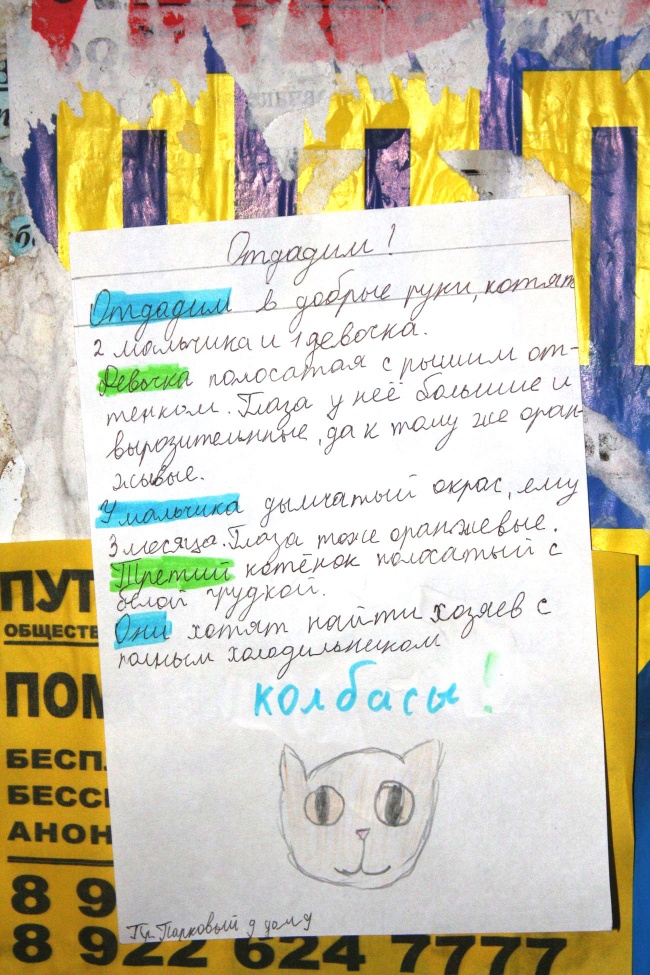 Отдадим!
Отдадим в добрые руки, котят
2 мальчика и 1 девочка.
Девочка полосатая с рышим от-
тенком. Глаза у неё большие и
вырозительнные, да к тому же оран-
жывые.
У мальчика дымчатый окрас, ему
3 месяца. Глаза тоже оранжевые.
Третий котёнок полосатый с
белой грудкой.
Они хотят найти хозяев с
полным холодильником
колбасы!
Пр. Парковый
ПУТ
ОБЩЕСТВ
ПОМ
БЕСП
БЕССР
АНОН
8 9
8 922 624 7777